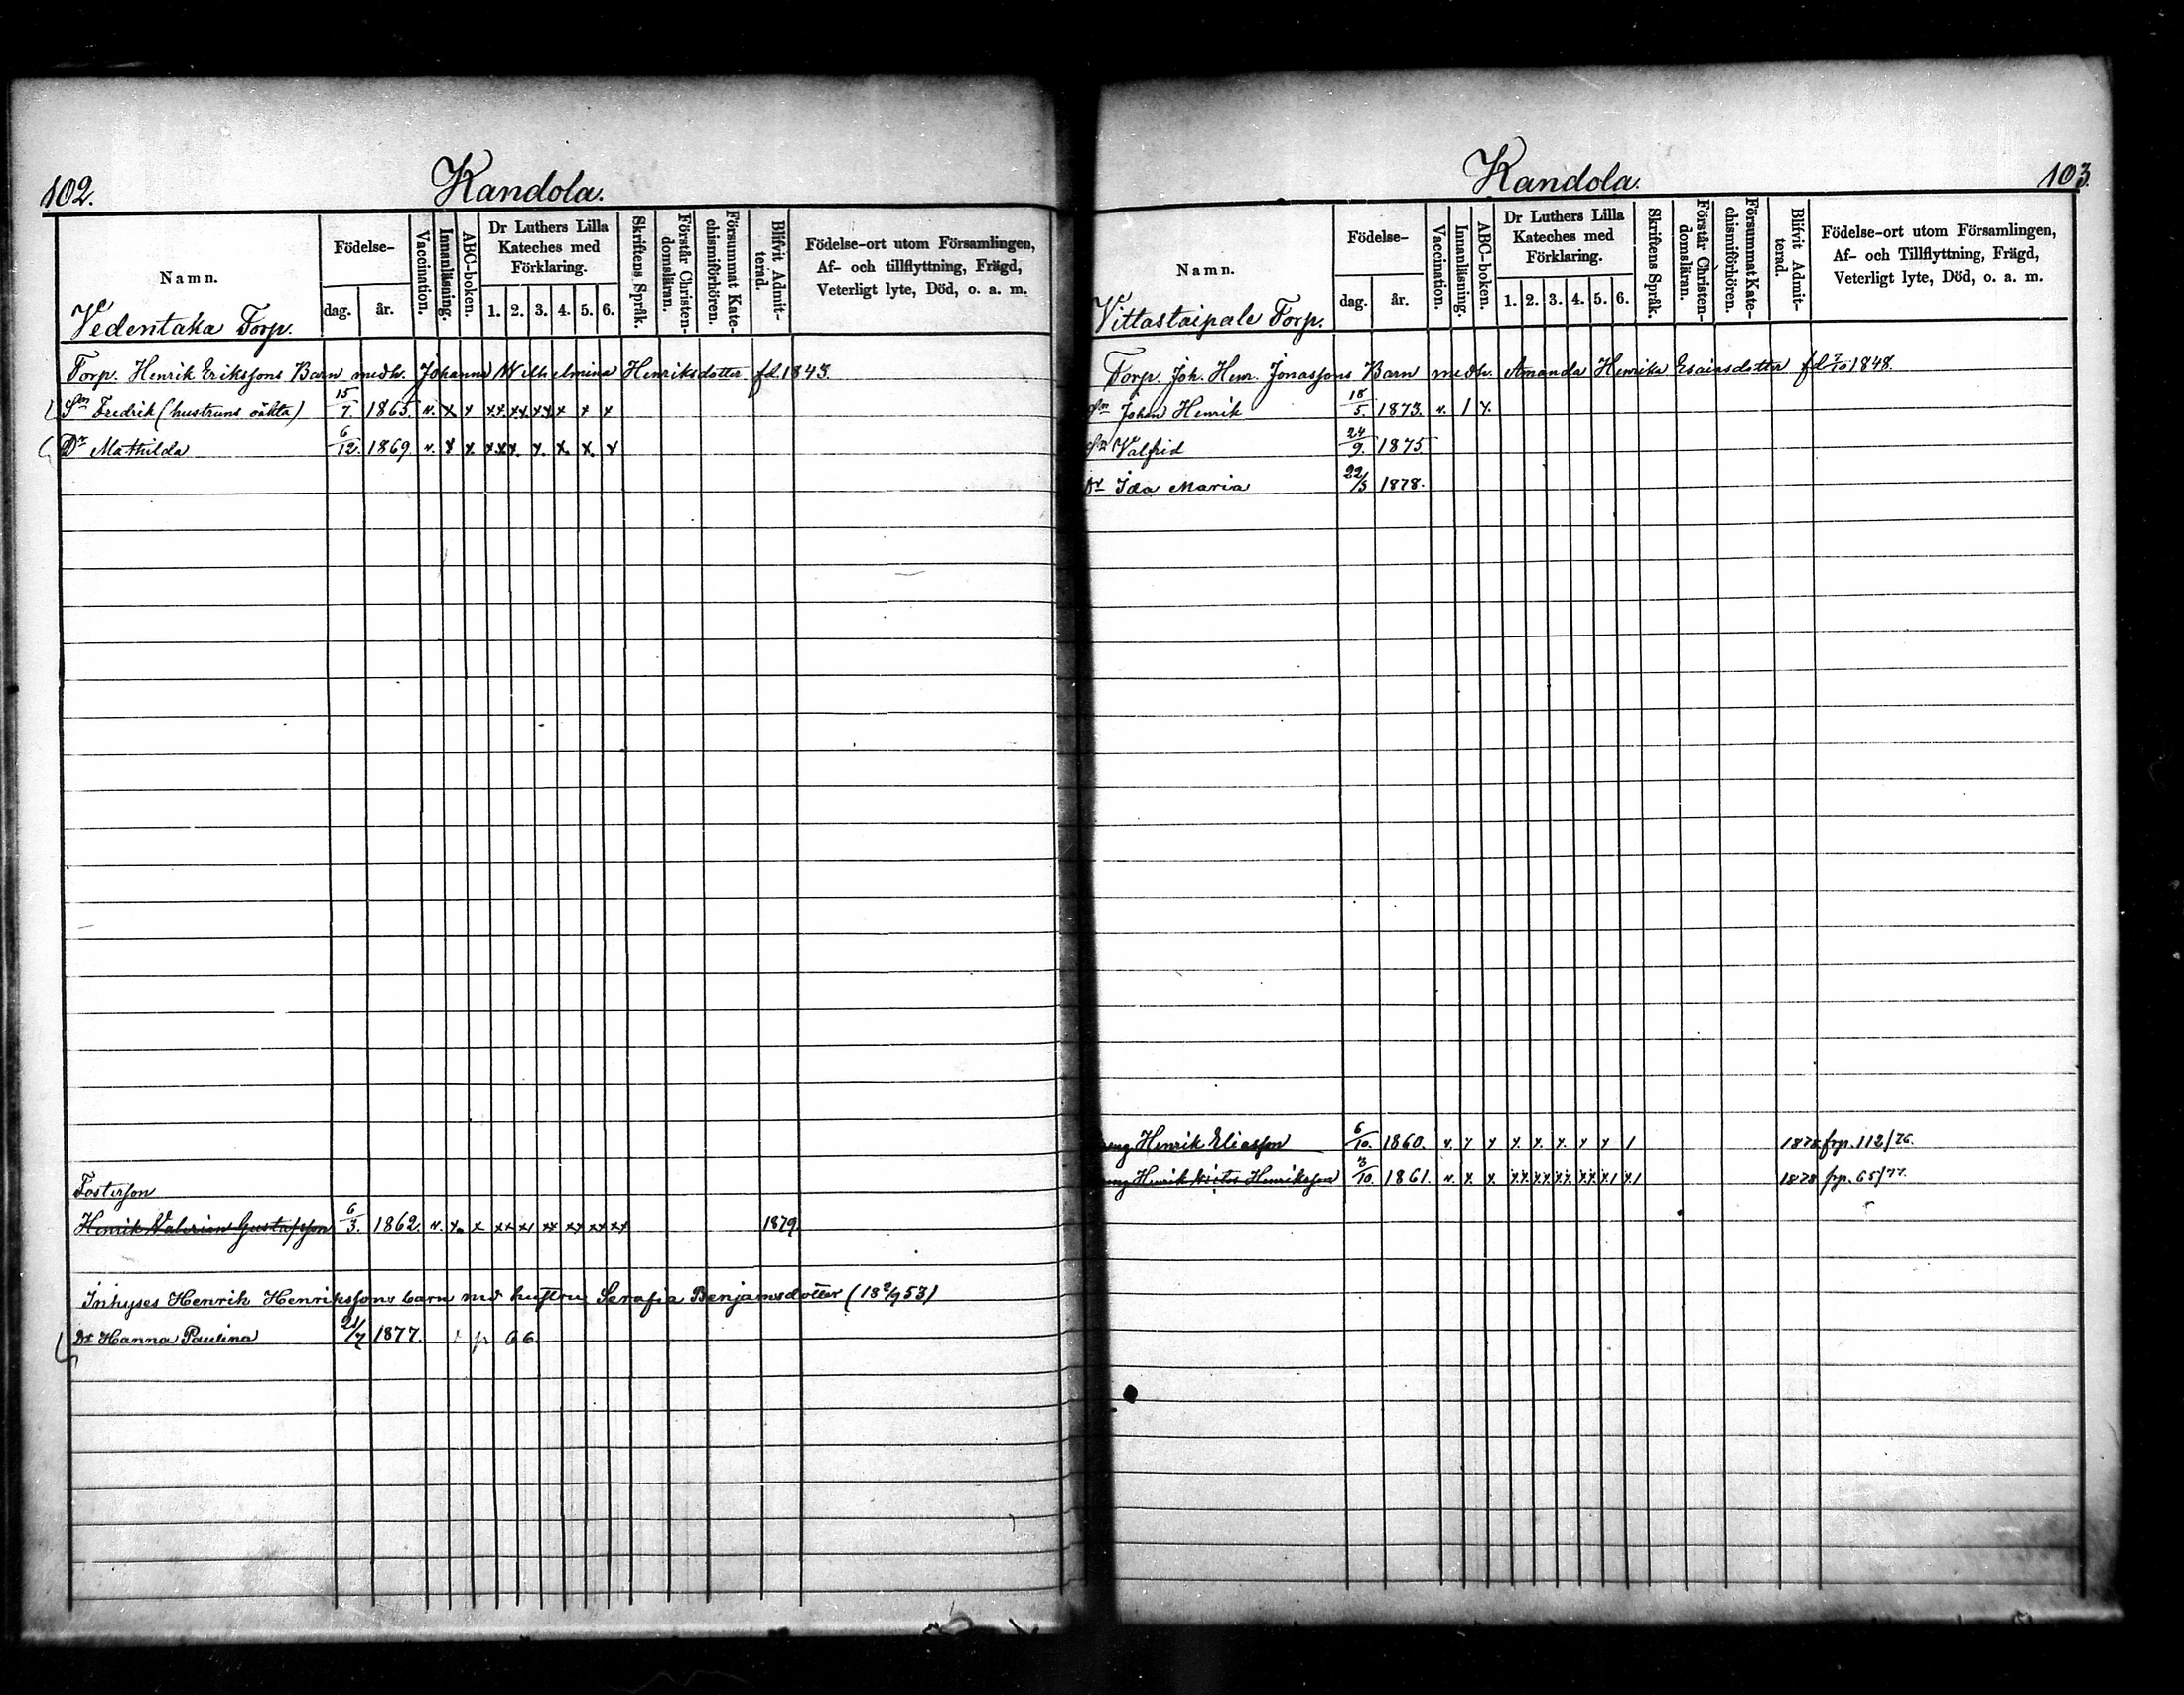 102.
Kandola.
Namn.
Födelse-
dag.
år.
Vaccination.
Innanläsning.
ABC-boken.
Dr Luthers Lilla Kateches med Förklaring.
1. 2. 3. 4. 5. 6.
Skriftens Språk.
Förstår Christendomsläran.
Försummat Katechismiförhören.
Blifvit Admitterad.
Födelse-ort utom Församlingen,
Af- och tillflyttning, Frägd,
Veterligt lyte, Död, o. a. m.
Vedentaka Torp.
Torp. Henrik Erikssons Barn medh. Johanna Wilhelmina Henriksdotter fd. 1843.
Sn Fredrik (hustruns oäkta) 15/7. 1865. v. x x xx xx xx x x x
Dr Mathilda 6/12. 1869. v. x x. xxx. x. x. x. x
Fosterson
Henrik Valerian Gustafsson 6/3. 1862. v. x. x xx xx xx xx xx xx 1879
Inhyses Henrik Henrikssons barn md hustru Serafia Benjamsdotter (18 2/9 53)
Dr Hanna Paulina 21/7 1877.
103.
Kandola.
Namn.
Födelse-
dag.
år.
Vaccination.
Innanläsning.
ABC-boken.
Dr Luthers Lilla Kateches med Förklaring.
1. 2. 3. 4. 5. 6.
Skriftens Språk.
Förstår Christendomsläran.
Försummat Katechismiförhören.
Blifvit Admitterad.
Födelse-ort utom Församlingen,
Af- och Tillflyttning, Frägd,
Veterligt lyte, Död, o. a. m.
Vittastaipale Torp.
Torp. Joh. Henr. Jonassons Barn medh. Amanda Henrika Esaiasdotter fd 1848.
Sn Johan Henrik 18/5. 1873. v. 1 x.
Sn Valfrid 24/9. 1875
Dr Ida Maria 22/3 1878.
Henrik Eliasson 6/10. 1860. v. x x x. x. x. x x 1 1878 frp. 112/76.
Henrik Henriksson 3/10. 1861. v. x. x. 1878 frp. 65/77.